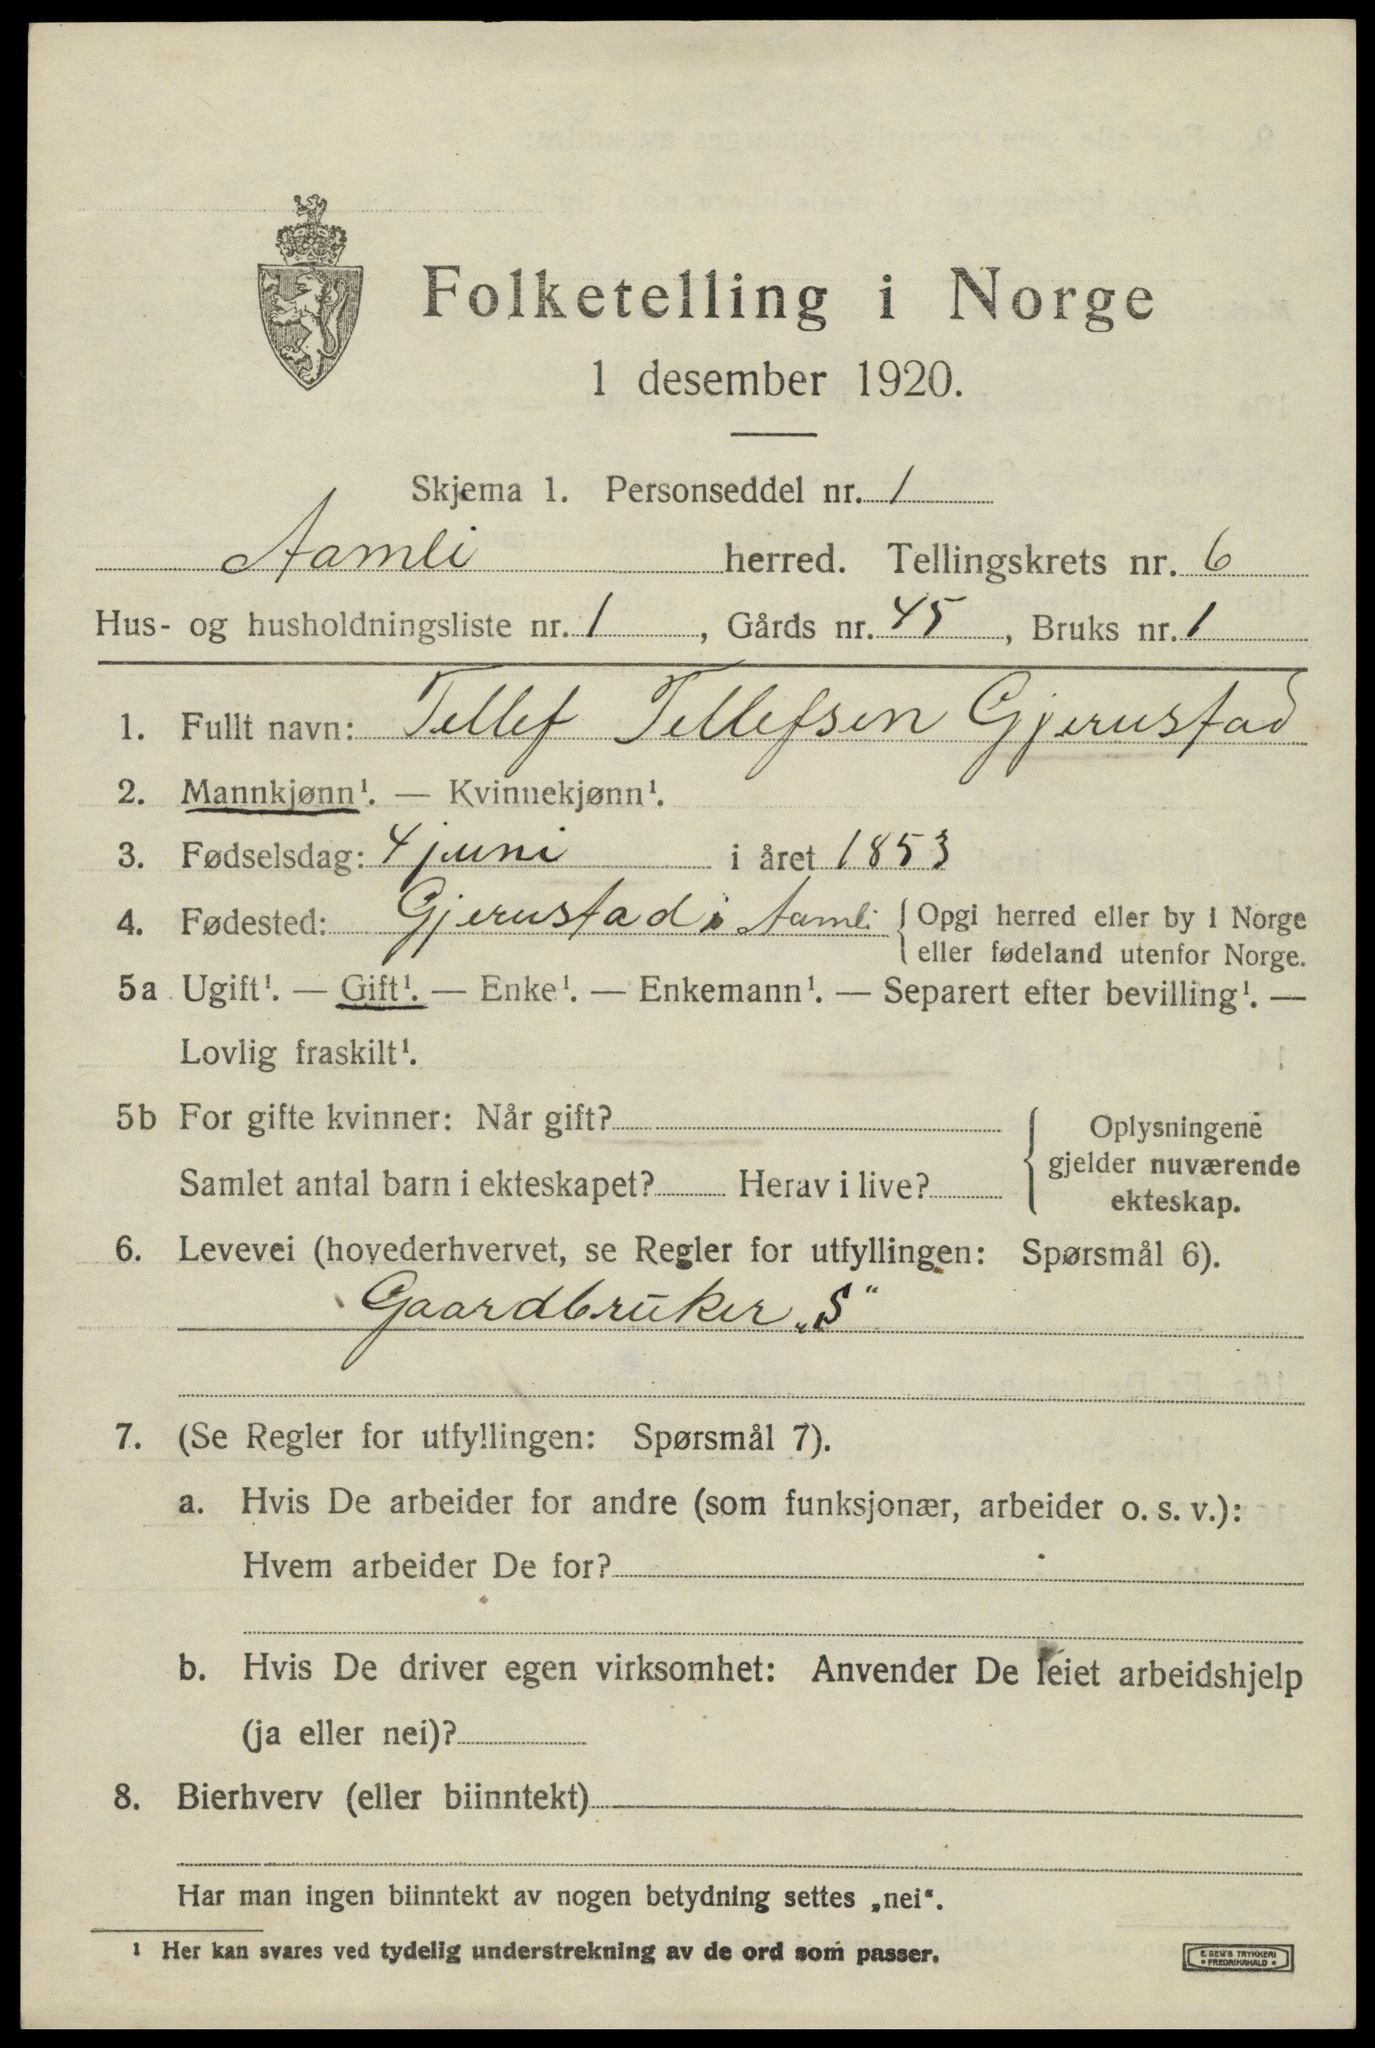 Folketelling i Norge
1 desember 1920.
Skjema 1. Personseddel nr. 1
Aamli herred. Tellingskrets nr. 6
Hus- og husholdningsliste nr. 1, Gårds nr. 45, Bruks nr. 1
1. Fullt navn: Tellef Tellefsen Gjerustad
2. Mannkjønn¹. — Kvinnekjønn¹.
3. Fødselsdag: 4 juni i året 1853
4. Fødested: Gjerustad i Aamli { Opgi herred eller by i Norge
eller fødeland utenfor Norge.
5a Ugift¹. — Gift¹. — Enke¹. — Enkemann¹. — Separert efter bevilling¹. —
Lovlig fraskilt¹.
5b For gifte kvinner: Når gift?
Samlet antal barn i ekteskapet? Herav i live?
Oplysningene
gjelder nuværende
ekteskap.
6. Levevei (hovederhvervet, se Regler for utfyllingen: Spørsmål 6).
Gaardbruker „S“
7. (Se Regler for utfyllingen: Spørsmål 7).
a. Hvis De arbeider for andre (som funksjonær, arbeider o. s. v.):
Hvem arbeider De for?
b. Hvis De driver egen virksomhet: Anvender De leiet arbeidshjelp
(ja eller nei)?
8. Bierhverv (eller biinntekt)
Har man ingen biinntekt av nogen betydning settes „nei“.
¹ Her kan svares ved tydelig understrekning av de ord som passer.
E SEM'S TRYKKERI
• FREDRIKSHALD •